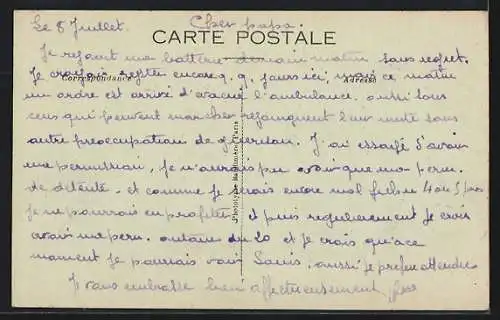 Le 8 Juillet. Cher papa.
CARTE POSTALE
Je rejoint ma batterie demain matin sans regret.
Correspondance Adresse
Je croyais rester encore q.q. jours ici, mais ce matin
un ordre est arrivé d'évacuer l'ambulance. aussi tous
ceux qui peuvent marcher rejoignent leur unité sans
autre préoccupation de guérison. J'ai essayé d'avoir
une permission, je n'aurais pu avoir que ma perm.
de détente. et comme je serais encore mal fichu 4 ou 5 jours
je ne pourrais en profiter et puis régulièrement je crois
avoir ma perm. autour du 20 et je crois qu'à ce
moment je pourrais voir Louis, aussi je préfère attendre
Je vous embrasse bien affectueusement